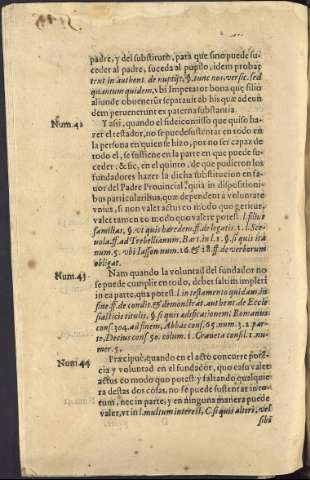 padre, y del substituto, para que sino puede su-
ceder al padre, suceda al pupilo, idem probat
text. in authent. de nuptijs, §. tunc nos, versic. sed
quantum quidem, vbi Imperator bona quę filio
aliunde obuenerũt separauit ab his quæ ad eun
dem peruenerunt ex paterna substantia.
Num.42
Y assi, quando el fideicomisso que quiso ha-
zer el testador, no se puede sustentar en todo en
la persona en quien se hizo, por no ser capaz de
todo el, se sustiene en la parte en que puede su-
ceder. & sic, en el quinto, de que pudieron los
fundadores hazer la dicha substitucion en fa-
uor del Padre Prouincial, quia in dispositioni-
bus particularibus, quæ dependent à voluntate
vnius, si non valet actus eo modo quo geritur,
valet tamen eo modo quo valere potest. l. filius
familias, §. vt quis hæredem. ff. de legatis. 1. l. Sce-
uola. ff. ad Trebellianum, Bart. in l. 1. §. si quis ita
num. 5. vbi Iasson num. 16. & 18. ff. de verborum
obligat.
Num.43
Nam quando la voluntad del fundador no
se puede cumplir en todo, debet saltim impleri
in ea parte, qua potest. l. in testamento quidam. in
fine. ff. de condit. & demonstrat. authent. de Eccle
siasticis titulis, §. si quis ædificationem. Romanus
cons. 304. ad finem, Abbas cons. 65. num. 3. 2. par-
te, Decius cons. 50. colum. 1. Craueta consil. 1. nu-
mer. 5.
Num.44
Præcipuè, quando en el acto concurre poten-
cia y voluntad en el fundador, quo casu valet
actus eo modo quo potest: y faltando qualquie
ra destas dos cosas, no se puede sustentar in to-
tum, nec in parte, y en ninguna manera puede
valer, vt in l. multum interest, C. si quis alteri, vel
sibi